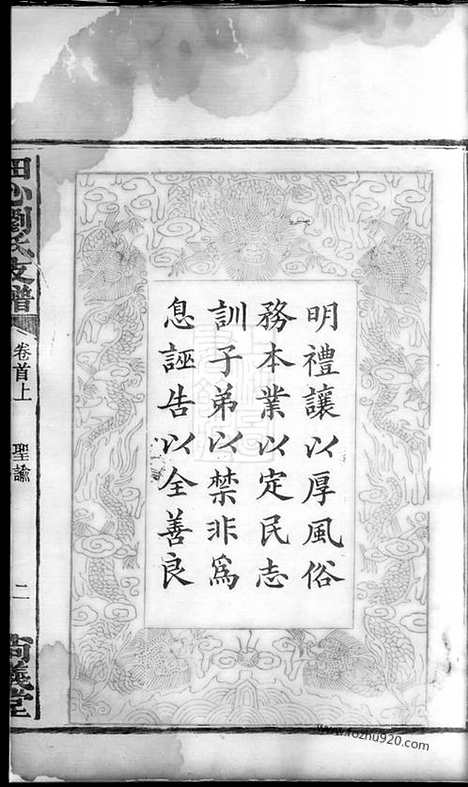 明禮讓以厚風俗
務本業以定民志
訓子弟以禁非爲
息誣告以全善良
田心劉氏支譜
卷首上
聖諭
二
尚義堂
www.fozhu920.com